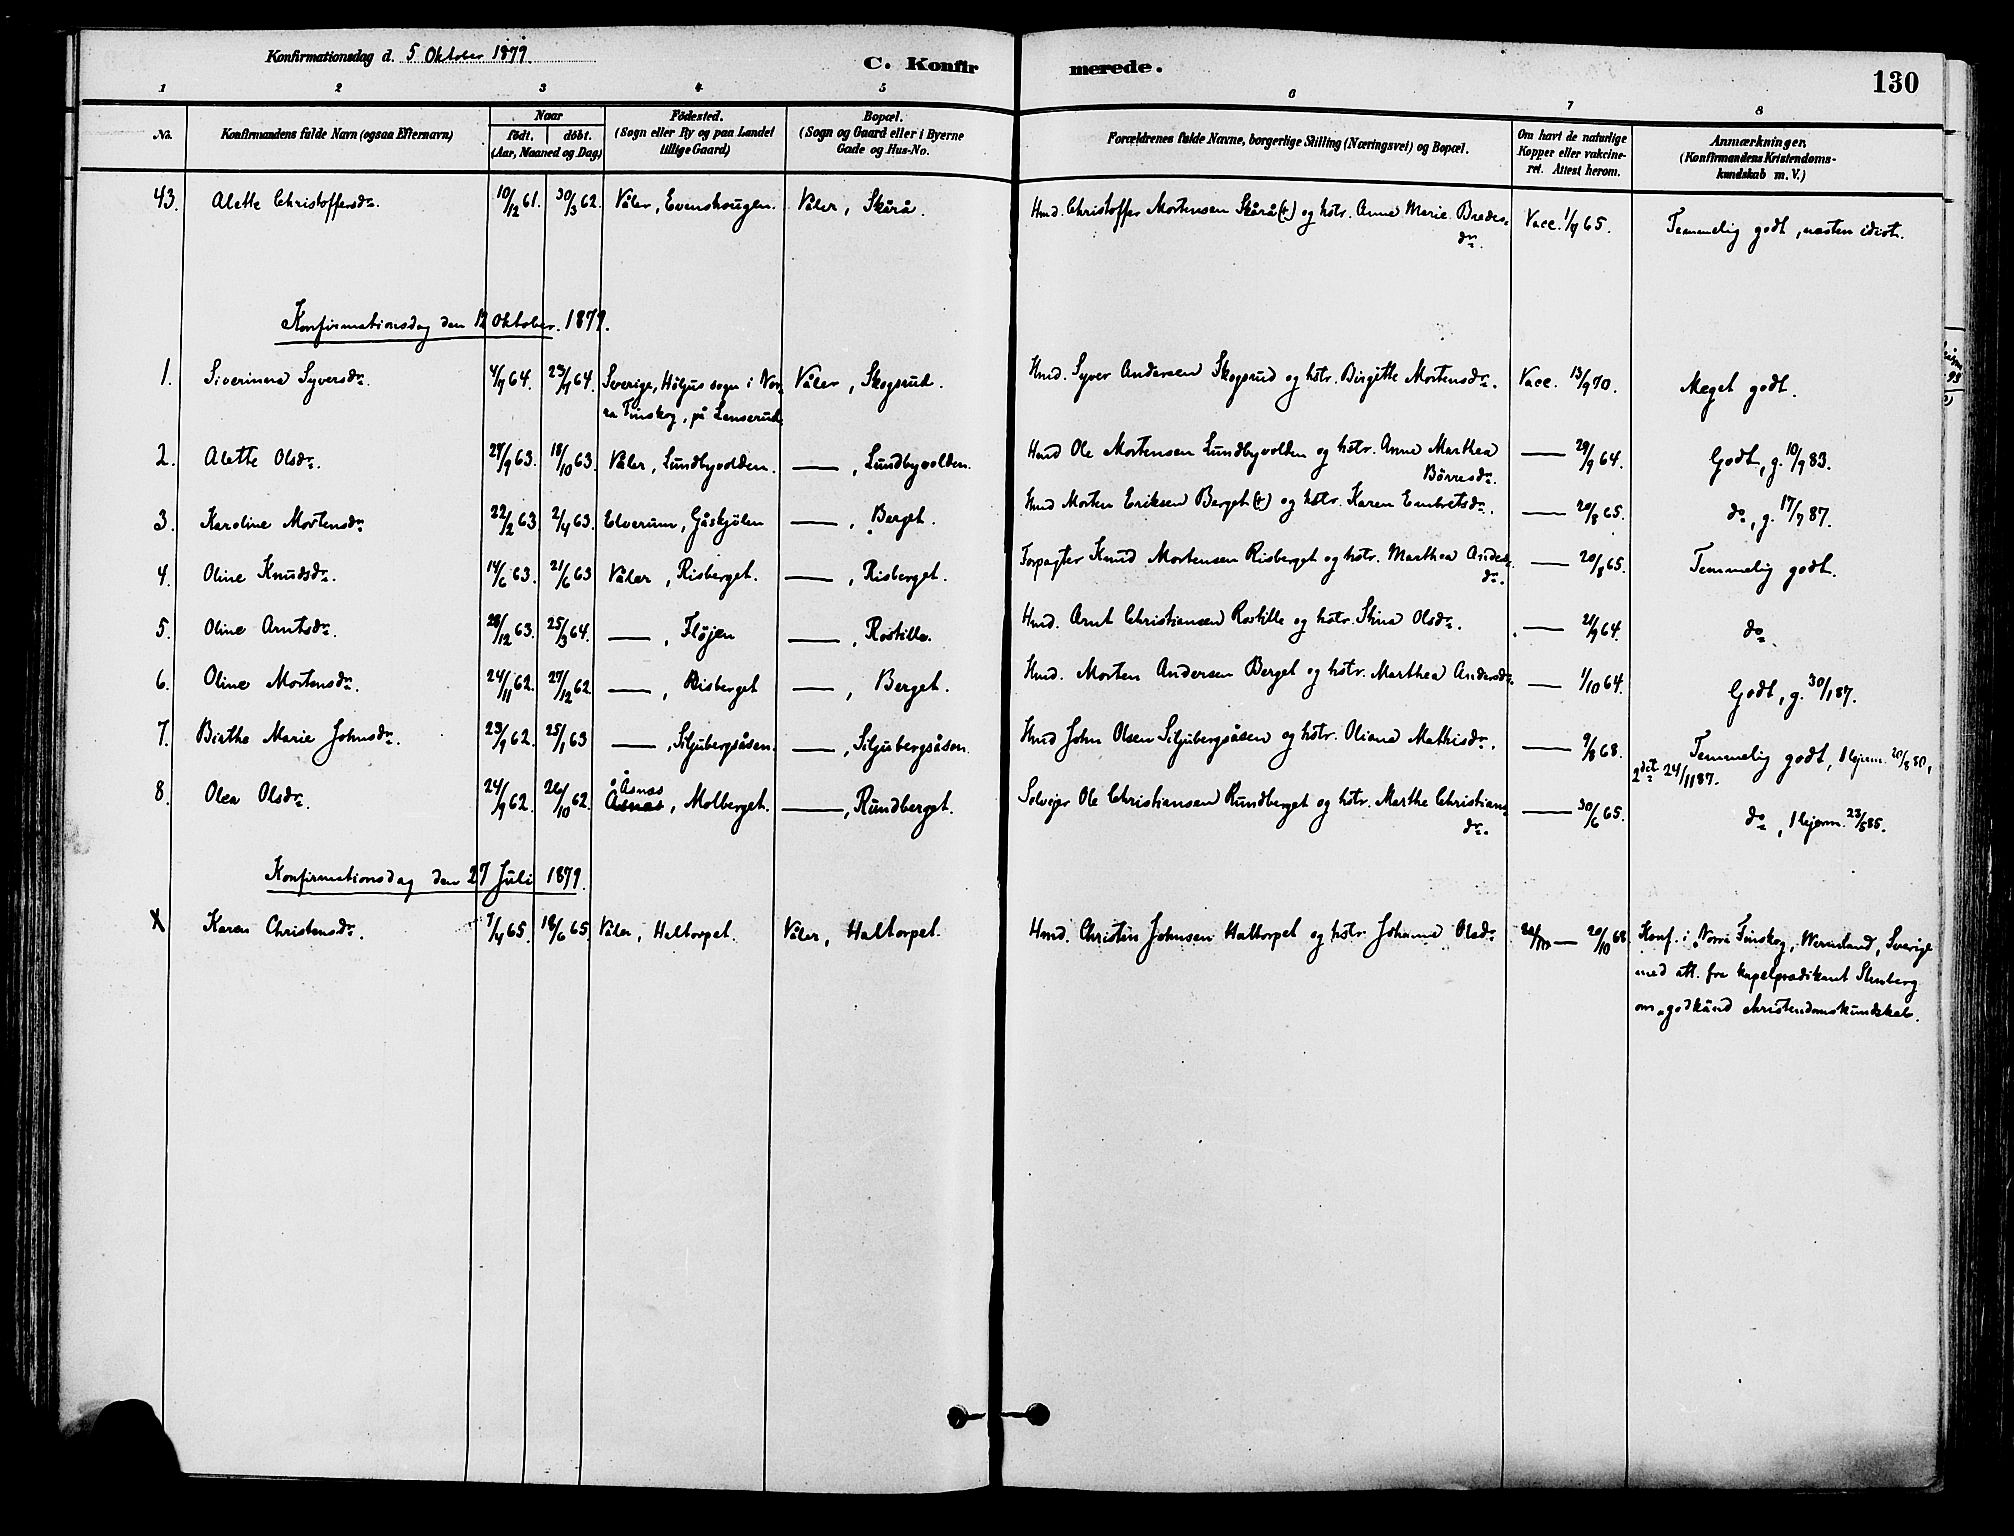 Konfirmationsdag d. 5 Oktober 1879
C. Konfirmerede.
130
1 2 3 4 5 6 7 8
No.
Konfirmandens fulde Navn (ogsaa Efternavn)
Naar
födt. döbt.
(Aar, Maaned og Dag)
Födested.
(Sogn eller By og paa Landet
tillige Gaard)
Bopæl.
(Sogn og Gaard eller i Byerne
Gade og Hus-No.
Forældrenes fulde Navne, borgerlige Stilling (Næringsvei) og Bopæl.
Om havt de naturlige
Kopper eller vakcine-
ret. Attest herom.
Anmærkninger.
(Konfirmandens Kristendoms-
kundskab m. V.)
43. Alette Christoffersdr. 10/12 61. 30/3 62. Våler, Evenshaugen. Våler, Skårå. Hmd. Christoffer Mortensen Skårå (+) og hstr. Anne Marie Bredes-
dr. Vacc. 1/9 65. Temmelig godt, næsten idiot.
Konfirmationsdag den 12 Oktober. 1879.
1. Siverinea Syversdr. 4/7 64. 23/7 64. Sverige, Höljus sogn i Nor-
ra Finskog, på Lenserud. Våler, Skogsrud. Hmd. Syver Andersen Skogsrud og hstr. Birgitte Mortensdr. Vacc. 13/9 70. Meget godt.
2. Alette Olsdr. 27/9 63. 18/10 63. Våler, Lundbyvolden. — , Lundbyvolden. Hmd Ole Mortensen Lundbyvolden og hstr. Anne Marthea
Börresdr. — 29/9 64. Godt, g. 10/9 83.
3. Karoline Mortensdr. 22/2 63 2/4 63. Elverum, Gåskjölen — , Berget. Hmd Morten Eriksen Berget (+) og hstr. Karen Embretsdr. — 20/8 65. do, g. 17/7 87.
4. Oline Knudsdr. 14/6 63. 21/6 63 Våler, Risberget. — , Risberget. Forpagter Knud Mortensen Risberget og hstr. Marthea Anders-
dr. — 20/8 65. Temmelig godt.
5. Oline Arntsdr. 28/12 63. 25/3 64. — , Fløjen — , Rostille. Hmd. Arnt Christiansen Rostille og hstr. Stina Olsdr. — 21/9 64. do
6. Oline Mortensdr. 24/11 62. 27/12 62 — , Risberget — , Berget. Hmd. Morten Andersen Berget og hstr. Marthea Andersdr — 1/10 64. Godt, g. 30/1 87.
7. Birthe Marie Johnsdr. 23/9 62. 25/1 63 — , Siljubergsåsen. — , Siljubergsåsen. Hmd John Olsen Siljubergsåsen og hstr. Oliana Mathisdr. — 9/8 68. Temmelig godt, 1 hjem. 20/8 80,
2det 24/11 87.
8. Olea Olsdr. 24/9 62. 26/10 62. Åsnæs, Molberget. — , Rundberget. Selvejer Ole Christiansen Rundberget og hstr. Marthe Christians-
dr. — 30/6 65. do, 1 hjem. 23/5 85.
Konfirmationsdag den 27 Juli 1879.
X Karen Christensdr. 7/4 65. 18/6 65. Våler, Haltorpet. Våler, Haltorpet. Hmd. Christen Johnsen Haltorpet og hstr. Johanne Olsdr. — 20/10 68 Konf. i Norra Finskog, Wermland, Sverige
med att. fra kapelpredikant Stenberg
om "godkänd christendomskundskab.